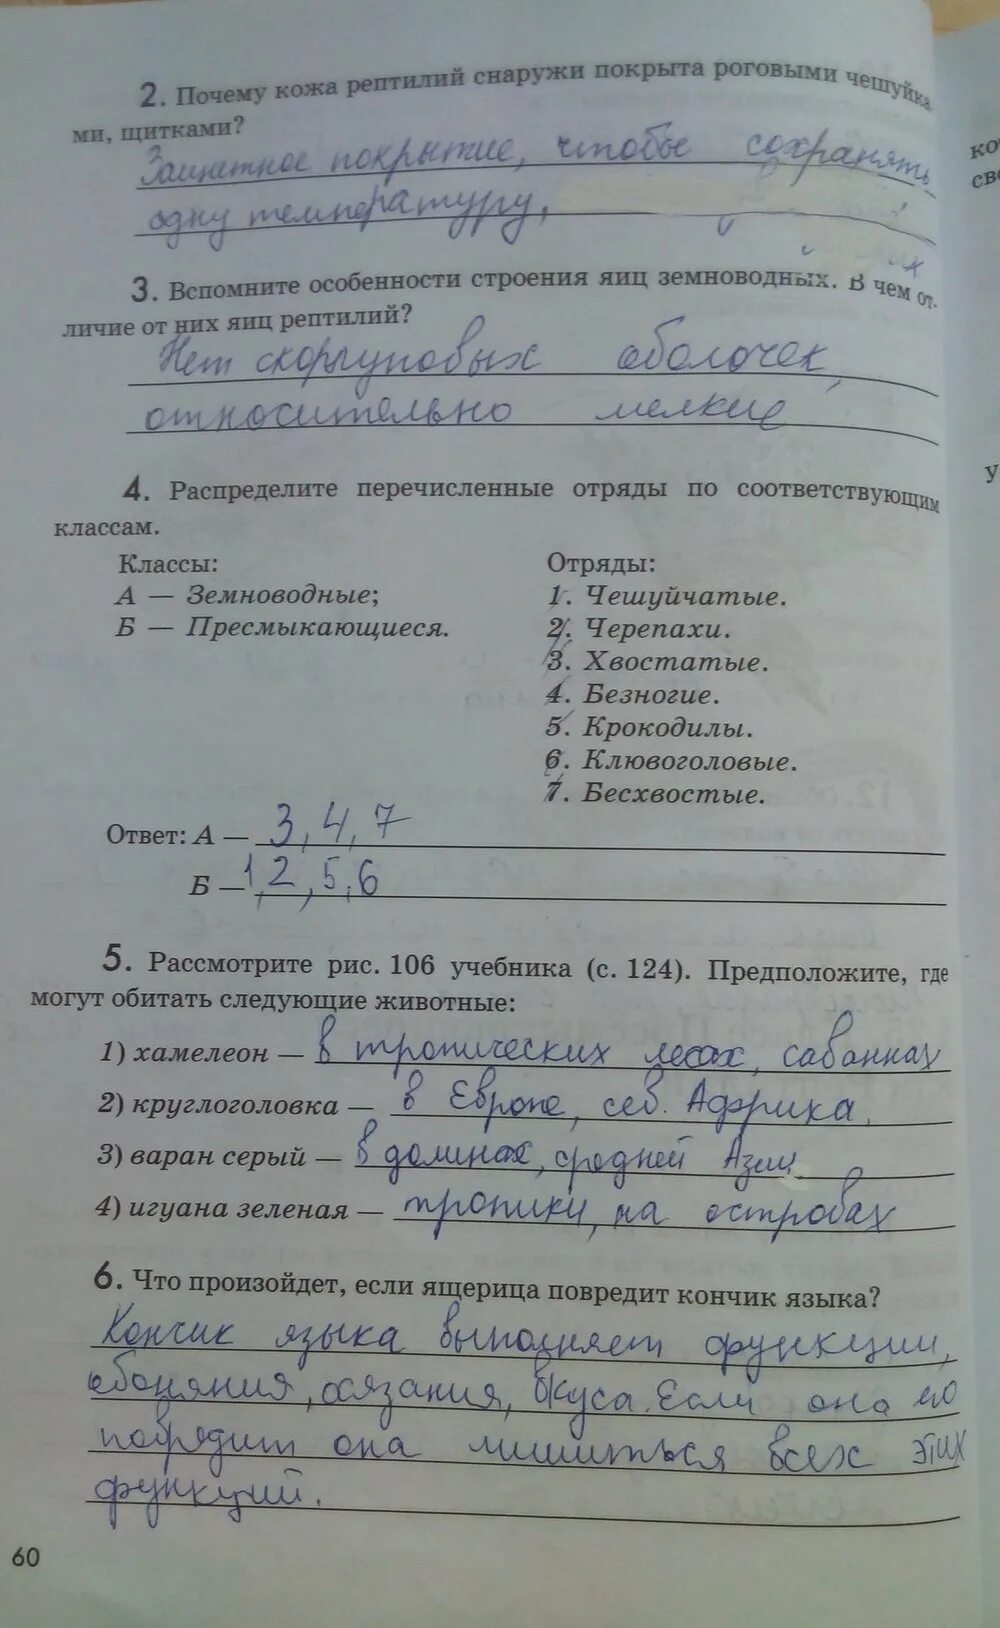 2. Почему кожа рептилий снаружи покрыта роговыми чешуйка-
ми, щитками?
Защитное покрытие, чтобы сохранять
одну температуру,
3. Вспомните особенности строения яиц земноводных. В чем от-
личие от них яиц рептилий?
Нет скорлуповых оболочек,
относительно мелкие
4. Распределите перечисленные отряды по соответствующим
классам.
Классы:
А — Земноводные;
Б — Пресмыкающиеся.
Отряды:
1. Чешуйчатые.
2. Черепахи.
3. Хвостатые.
4. Безногие.
5. Крокодилы.
6. Клювоголовые.
7. Бесхвостые.
Ответ: А — 3, 4, 7
Б — 1, 2, 5, 6
5. Рассмотрите рис. 106 учебника (с. 124). Предположите, где
могут обитать следующие животные:
1) хамелеон — в тропических лесах, саваннах
2) круглоголовка — в Европе, сев. Африка.
3) варан серый — в долинах, средней Азии
4) игуана зеленая — тропики, на островах
6. Что произойдет, если ящерица повредит кончик языка?
Кончик языка выполняет функции,
обоняния, осязания, вкуса. Если она его
повредит она лишиться всех этих
функций.
60
ко
све
у